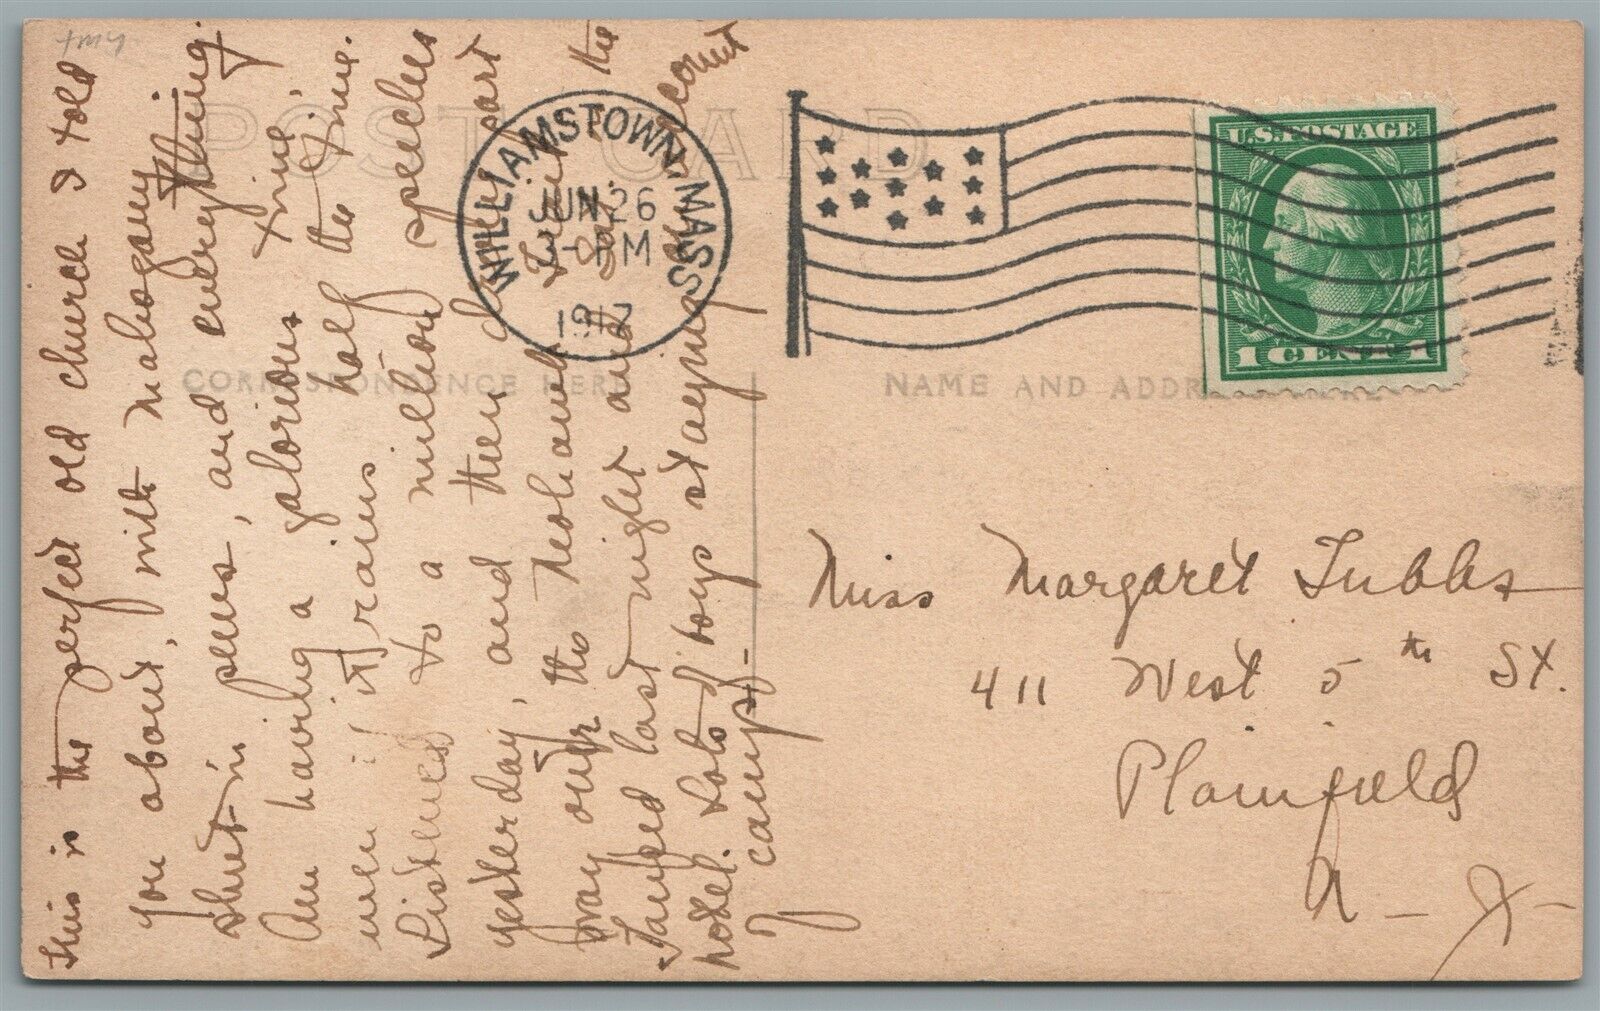 POST CARD
WILLIAMSTOWN, MASS
JUN 26
3-PM
1917
U.S. POSTAGE
1 CENT 1
CORRESPONDENCE HERE
NAME AND ADDR
This is the perfect old church I told
you about, with mahogany
shut-in pews, and everything.
Am having a glorious time,
even if it rains half the time.
Listened to a million speeches
yesterday, and then drove part
way over the Mohawk Trail
Tanked last night and the
hotel. Lots of boys staying
camps-
Miss Margaret Tubbs
411 West 5th St.
Plainfield
N-J-